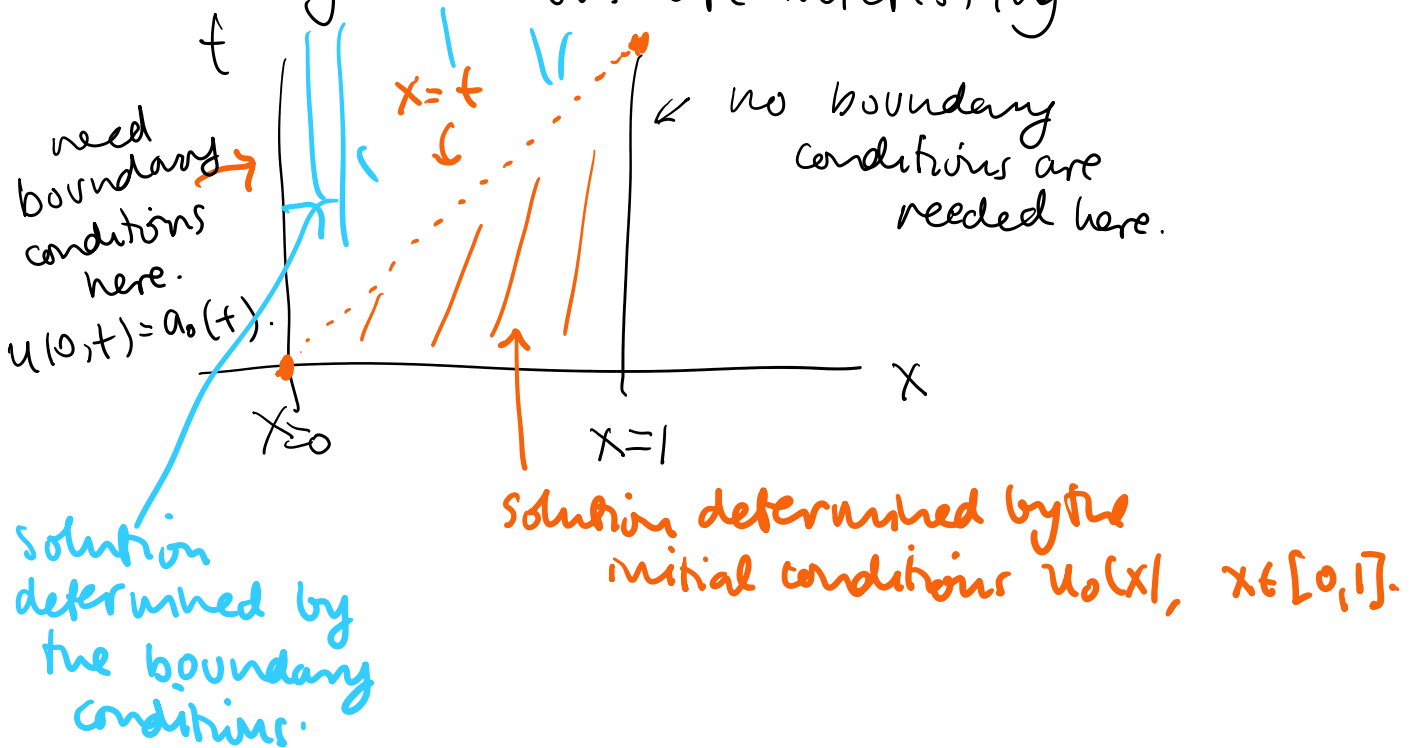 are interesting
t
x=t
no boundary
conditions are
needed here.
need
boundary
conditions
here.
u(0,t)=a₀(t).
x
x=0
x=1
solution determined by the
initial conditions u₀(x), x∈[0,1].
solution
determined by
the boundary
conditions.